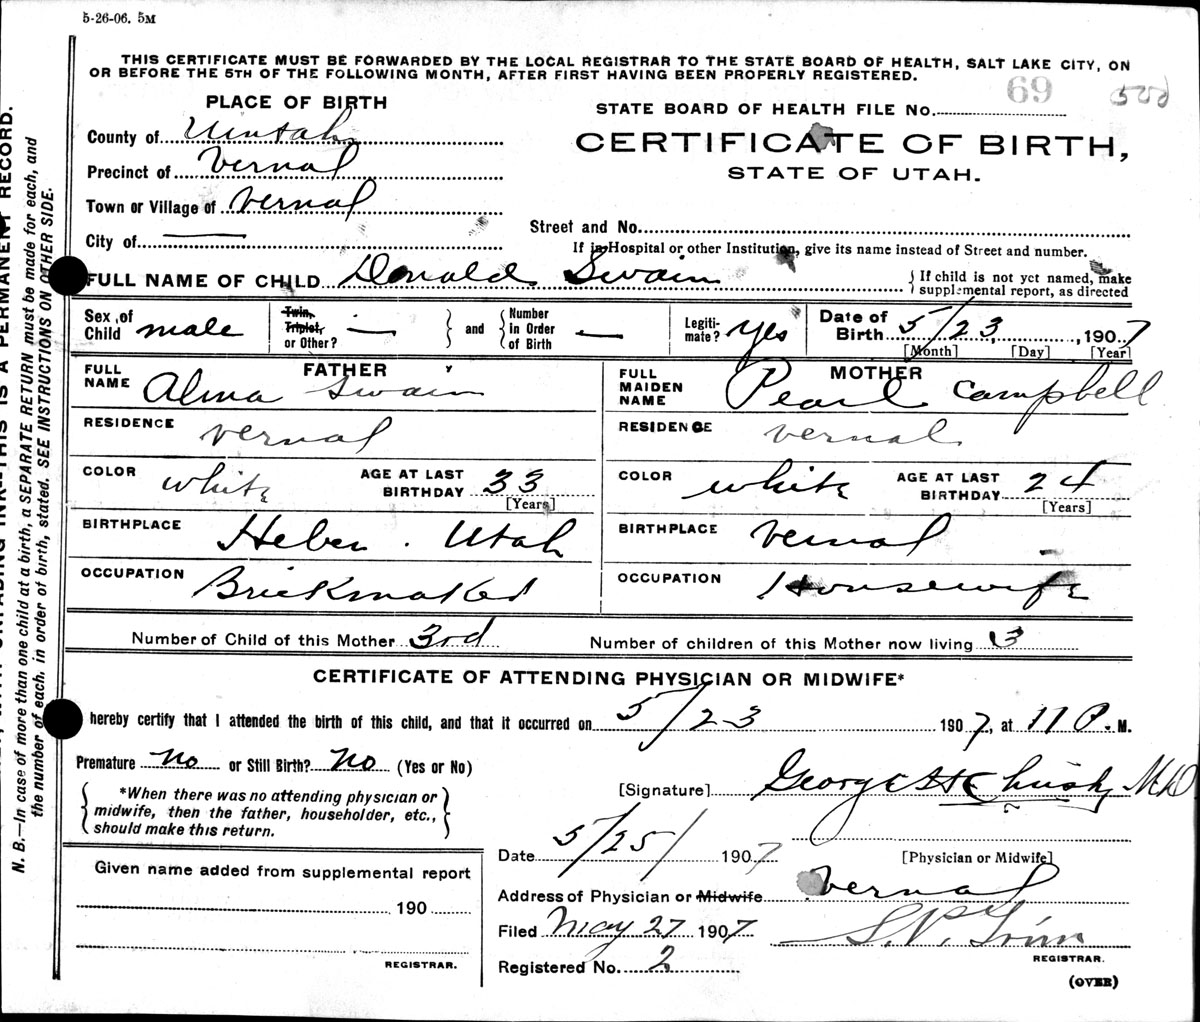 5-26-06. 5M
THIS CERTIFICATE MUST BE FORWARDED BY THE LOCAL REGISTRAR TO THE STATE BOARD OF HEALTH, SALT LAKE CITY, ON
OR BEFORE THE 5TH OF THE FOLLOWING MONTH, AFTER FIRST HAVING BEEN PROPERLY REGISTERED.
PLACE OF BIRTH
County of Uintah
Precinct of Vernal
Town or Village of Vernal
City of —
69
STATE BOARD OF HEALTH FILE No.
CERTIFICATE OF BIRTH,
STATE OF UTAH.
Street and No.
If in Hospital or other Institution, give its name instead of Street and number.
FULL NAME OF CHILD Donald Swain
{ If child is not yet named, make
supplemental report, as directed
Sex of Child male
Twin, Triplet, or Other? —
and
Number in Order of Birth —
Legiti-mate? Yes
Date of Birth 5/23, 1907
[Month] [Day] [Year]
FATHER
FULL NAME Alma Swain
RESIDENCE Vernal
COLOR white
AGE AT LAST BIRTHDAY 33
[Years]
BIRTHPLACE Heber. Utah
OCCUPATION Brickmaker
MOTHER
FULL MAIDEN NAME Pearl Campbell
RESIDENCE Vernal
COLOR white
AGE AT LAST BIRTHDAY 24
[Years]
BIRTHPLACE Vernal
OCCUPATION Housewife
Number of Child of this Mother 3rd
Number of children of this Mother now living 3
CERTIFICATE OF ATTENDING PHYSICIAN OR MIDWIFE*
hereby certify that I attended the birth of this child, and that it occurred on 5/23 1907, at 11 P. M.
Premature No or Still Birth? No (Yes or No)
*When there was no attending physician or
midwife, then the father, householder, etc.,
should make this return.
[Signature] George M.D.
Date 5/25/ 1907
[Physician or Midwife]
Address of Physician or Midwife Vernal
Filed May 27 1907
S. P.
REGISTRAR.
Registered No. 2
(OVER)
Given name added from supplemental report
190
REGISTRAR.
N. B.—In case of more than one child at a birth, a SEPARATE RETURN must be made for each, and
the number of each, in order of birth, stated. SEE INSTRUCTIONS ON OTHER SIDE.
INK--THIS IS A PERMANENT RECORD.